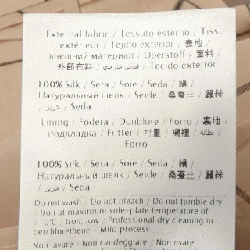 External fabric / Tessuto esterno / Tissu
extérieur / Tejido exterior / 表地 /
Внешний материал / Oberstoff / 面料 /
外部布料 / قماش خارجي / Tecido exterior
100% Silk / Seta / Soie / Seda / 絹 /
Натуральный шелк / Seide / 桑蠶丝 / 蠶絲
/ حرير / Seda
Lining / Fodera / Doublure / Forro / 裏地 /
Подкладка / Futter / 衬里 / 襯裡 / بطانة /
Forro
100% Silk / Seta / Soie / Seda / 絹 /
Натуральный шелк / Seide / 桑蠶丝 / 蠶絲
/ حرير / Seda
Do not wash / Do not bleach / Do not tumble dry
/ Iron at maximum sole-plate temperature of
/ Professional dry cleaning in
perchlorethylene - Mild process
Non lavare / Non candeggiare / Non